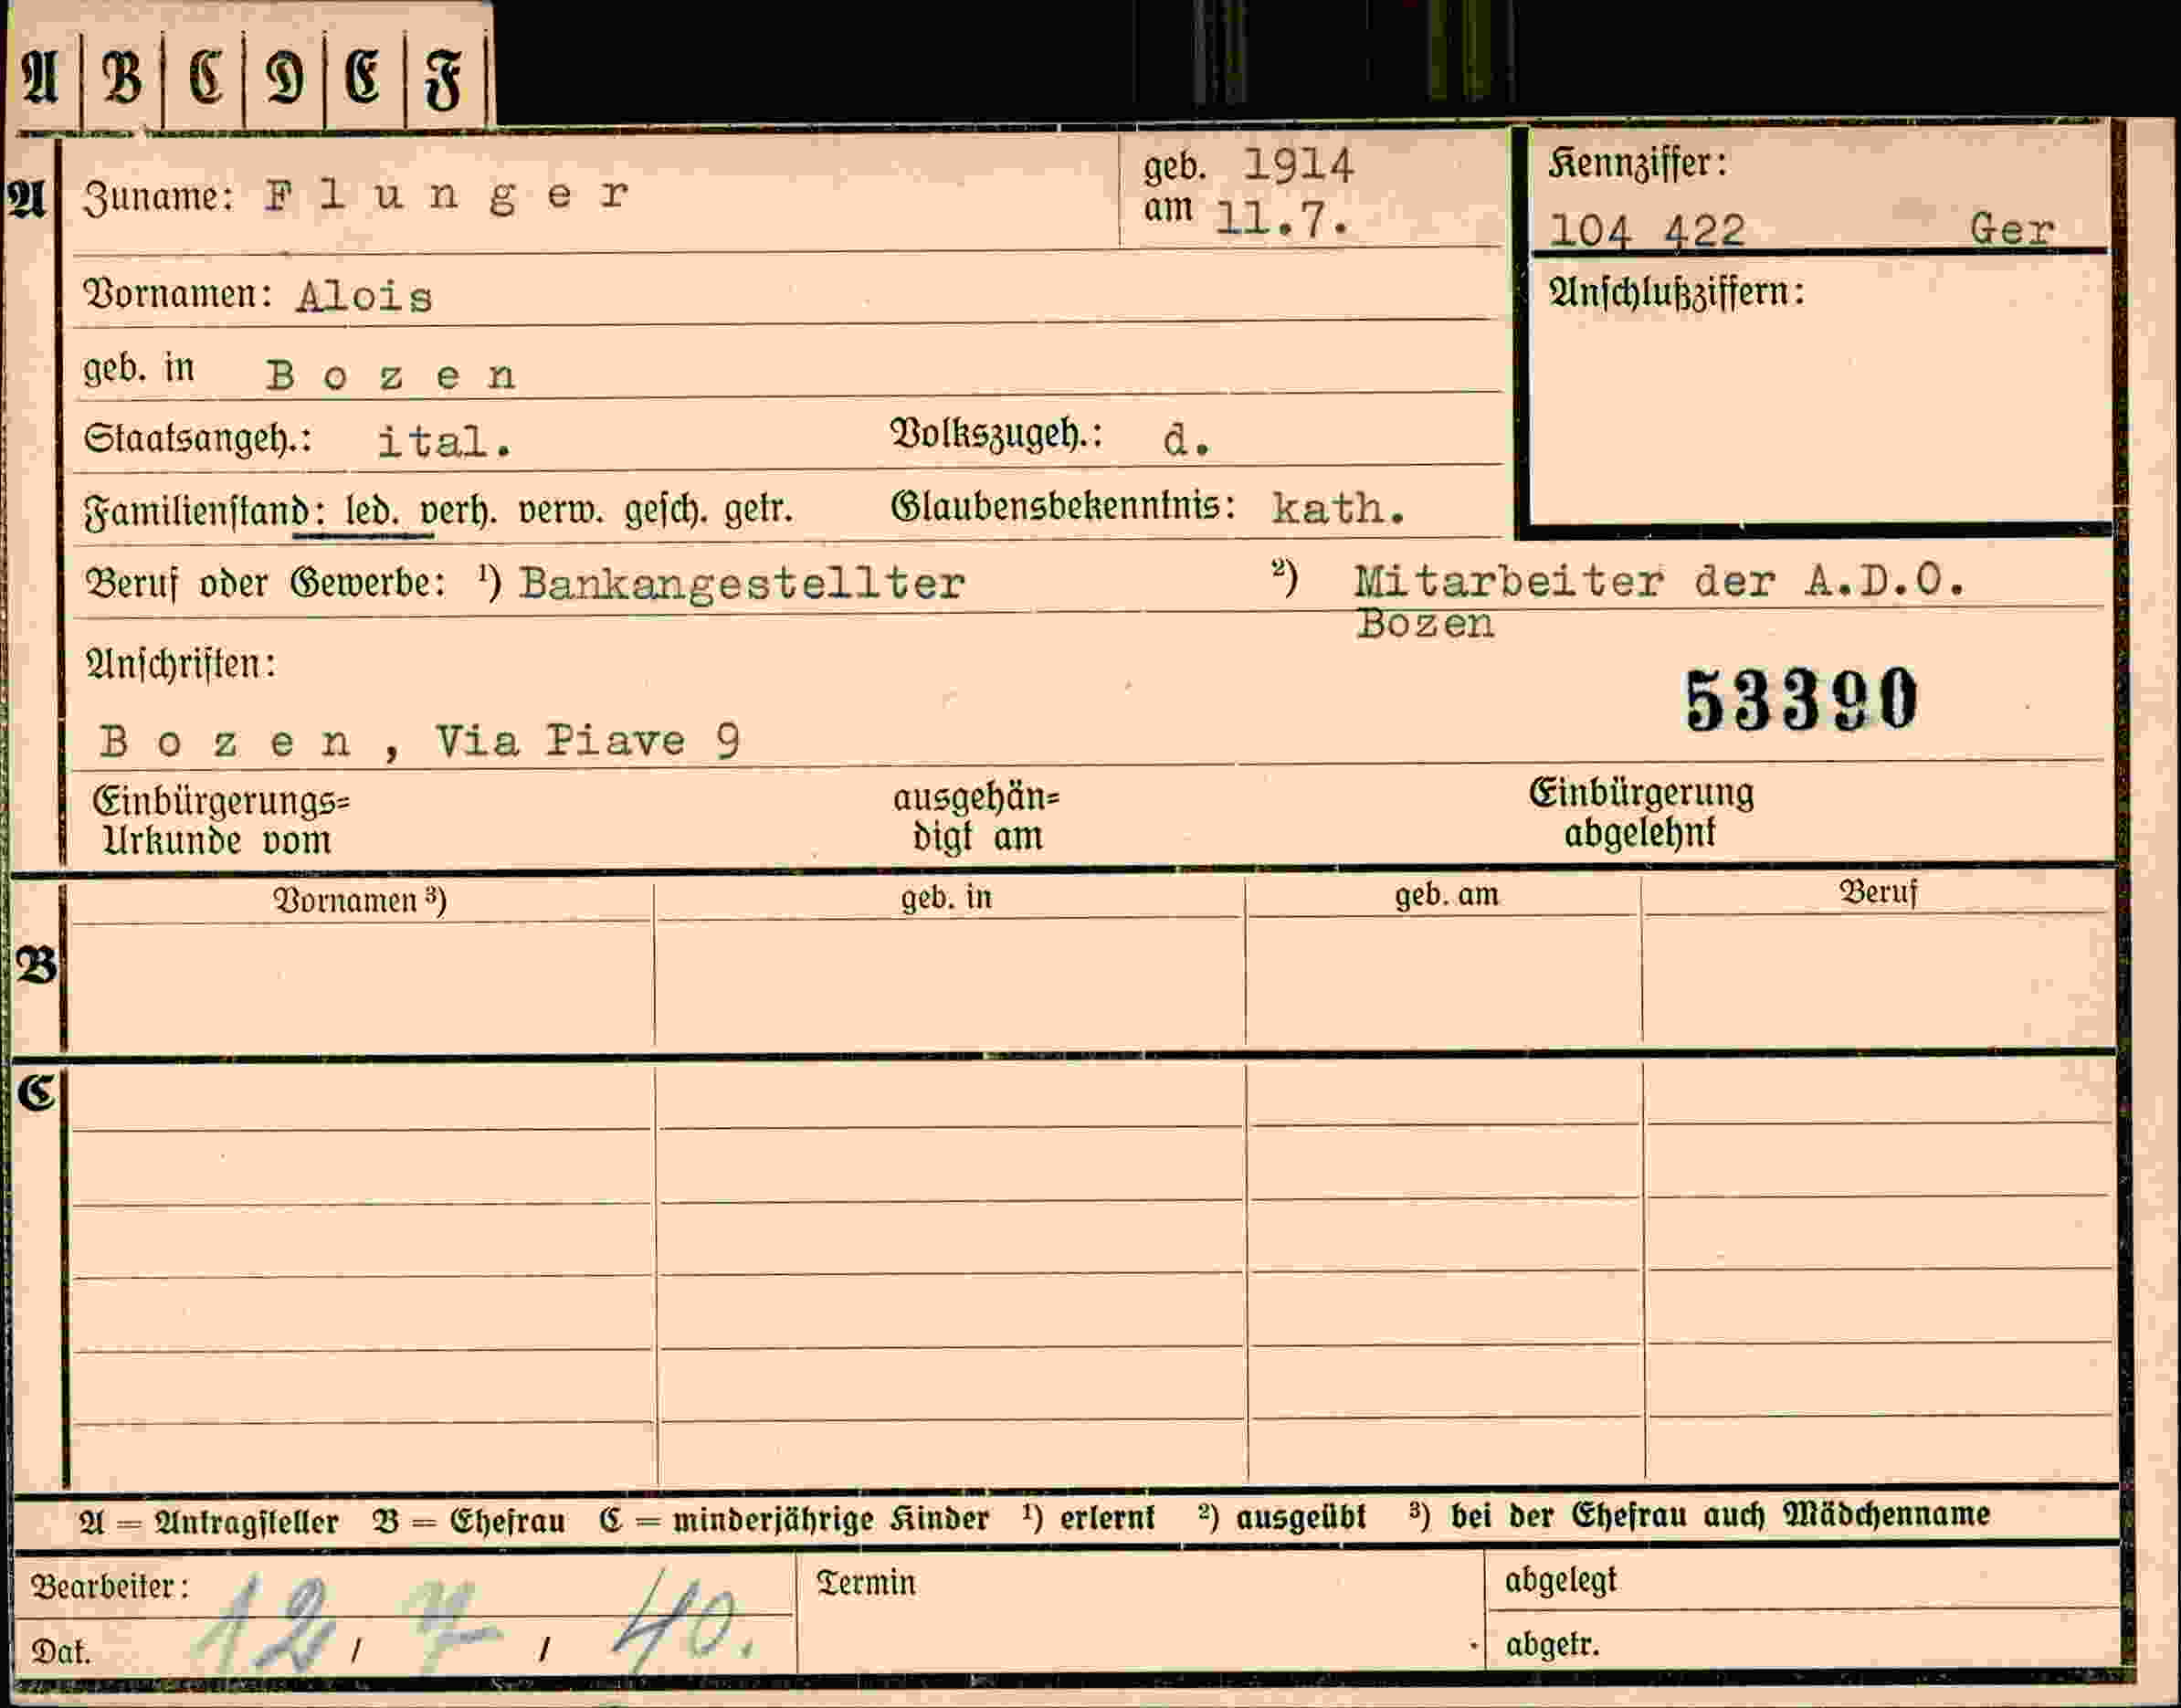 A B C D E F
A Zuname: Flunger geb. 1914 am 11.7. Kennziffer:
104 422 Ger
Vornamen: Alois Anschlußziffern:
geb. in Bozen
Staatsangeh.: ital. Volkszugeh.: d.
Familienstand: led. verh. verw. gesch. getr. Glaubensbekenntnis: kath.
Beruf oder Gewerbe: ¹) Bankangestellter ²) Mitarbeiter der A.D.O.
Bozen
Anschriften:
53390
Bozen, Via Piave 9
Einbürgerungs= ausgehän= Einbürgerung
Urkunde vom digt am abgelehnt
Vornamen ³) geb. in geb. am Beruf
B
C
A = Antragsteller B = Ehefrau C = minderjährige Kinder ¹) erlernt ²) ausgeübt ³) bei der Ehefrau auch Mädchenname
Bearbeiter: Termin abgelegt
Dat. 12 / 7 / 40. abgetr.